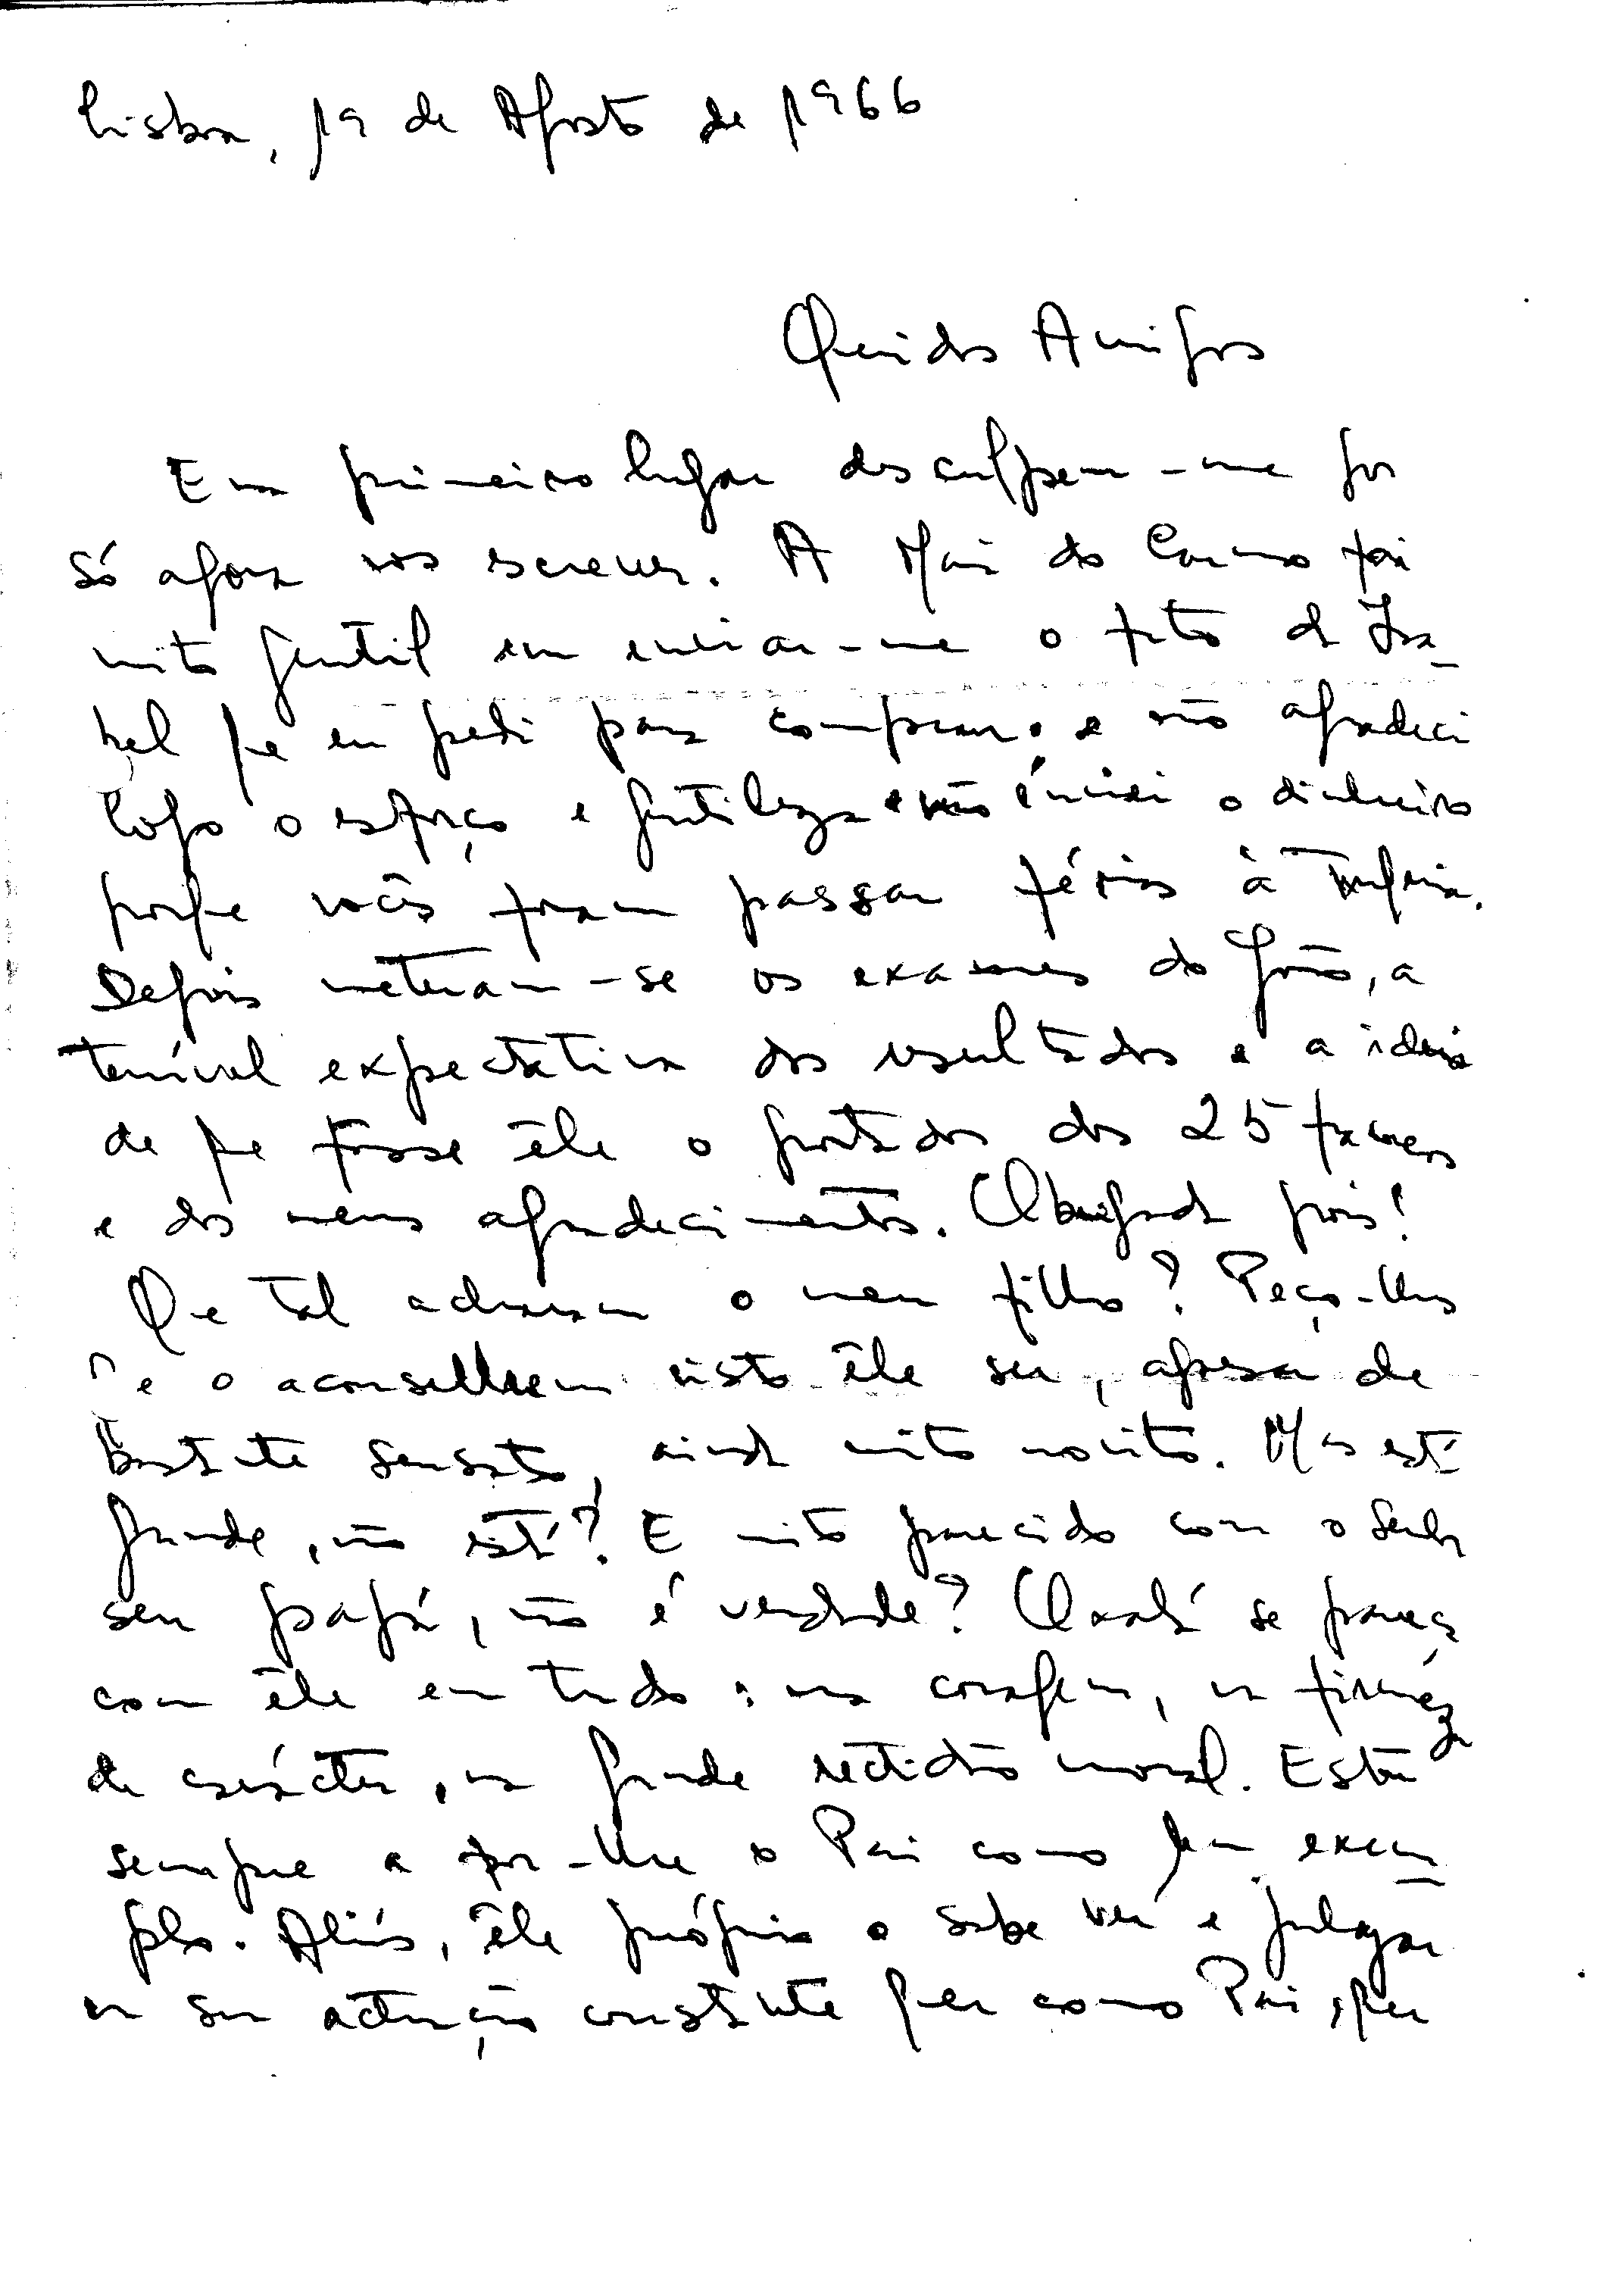 Lisboa, 19 de Agosto de 1966
Queridos Amigos
Em primeiro lugar desculpem-me por
só agora vos escrever. A Mãi do Carmo foi
muito gentil em enviar-me o fato da Isa-
bel que eu pedi para comprar e não agradeci
logo o esforço e gentileza e não enviei o dinheiro
porque vocês foram passar férias à
Depois meteram-se os exames do João, a
terrível expectativa dos resultados e a ideia
de que fosse êle o portador dos 25 francos
e dos meus agradecimentos. Obrigada pois!
Que tal acharam o meu filho? Peço-lhes
que o aconselhem visto êle ser, apesar de
bastante sensato, ainda muito novito. Mas está
grande, não está? E muito parecido com o senhor
seu papá, não é verdade? Oxalá se pareça
com êle em tudo: na coragem, na firmeza
de carácter, na grande rectidão moral. Estou
sempre a pôr-lhe o Pai como bom exem-
plo. Aliás, êle próprio o sabe ver e julgar
na sua actuação constante quer como Pai, quer